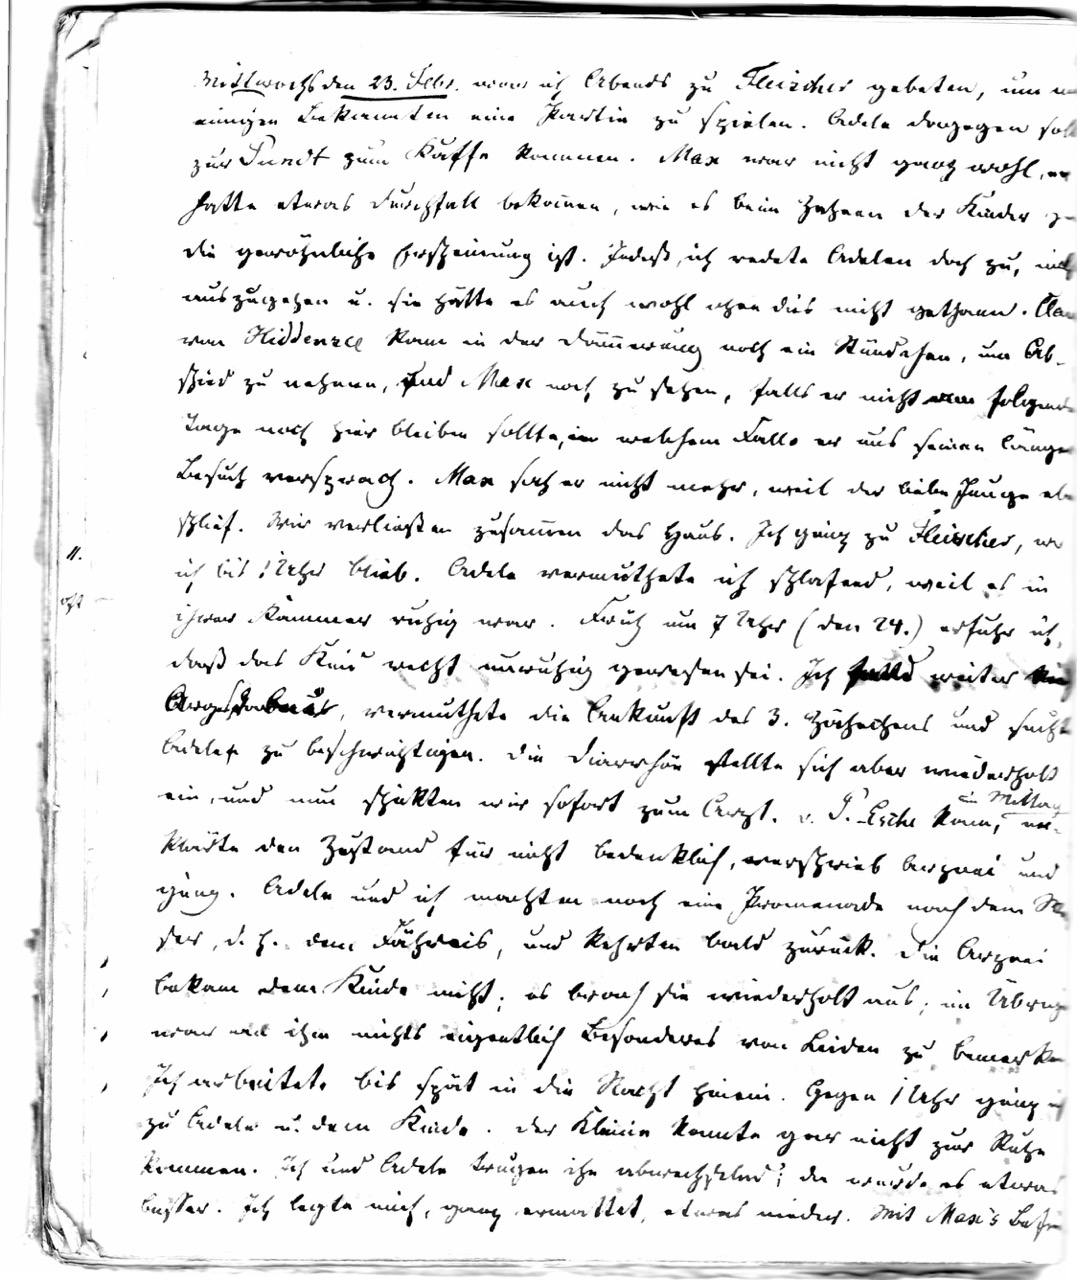 Mittwochs den 23. Febr. war ich Abends zu Fleischer gebeten, um
einigen Bekannten eine Partie zu spielen. Adele dagegen soll
zur Pundt zum Kaffe kommen. Max war nicht ganz wohl, er
hatte etwas Durchfall bekom̄en, wie es beim Zahnen der Kinder
die gewöhnliche Erscheinung ist. Indeß, ich redete Adelen doch zu,
auszugehen u. sie hätte es auch wohl ohne dies nicht gethan.
von Hiddenzee kam in der Dämmerung noch ein Stündchen, um Ab-
schied zu nehmen, und Max noch zu sehen, falls er nicht folgende
Tage noch hier bleiben sollte, in welchem Falle er uns seinen länge
Besuch versprach. Max sah er nicht mehr, weil der liebe Junge
schlief. Wir verließen zusam̄en das Haus. Ich ging zu Fleischer, wo
11.
ich bis 1 Uhr blieb. Adele vermuthete ich schlafend, weil es in
ihrer Kammer ruhig war. Früh um 7 Uhr (den 24.) erfuhr ich,
daß das Kind recht unruhig gewesen sei. Ich weiter
Arges dabei, vermuthete die Ankunft des 3. Zähnchens und sucht
Adele zu beschwichtigen. Die Diarrhöe stellte sich aber wiederholt
ein, und nun schickten wir sofort zum Arzt. v. d. Esche kam,
im Mittag
er-
klärte den Zustand für nicht bedenklich, verschrieb Arznei und
ging. Adele und ich machten noch eine Promenade nach dem
ser, d. h. dem Fähreis, und kehrten bald zurück. Die Arznei
bekam dem Kinde nicht; es brach sie wiederholt aus; im Übrig
war an ihm nichts eigentlich Besonderes von Leiden zu bemerken
Ich arbeitete bis spät in die Nacht hinein. Gegen 1 Uhr ging
zu Adele u. dem Kinde. Der Kleine konnte gar nicht zur Ruhe
kommen. Ich und Adele trugen ihn abwechselnd; da wurde es etwas
besser. Ich legte mich, ganz ermattet, etwas nieder. Mit Max's